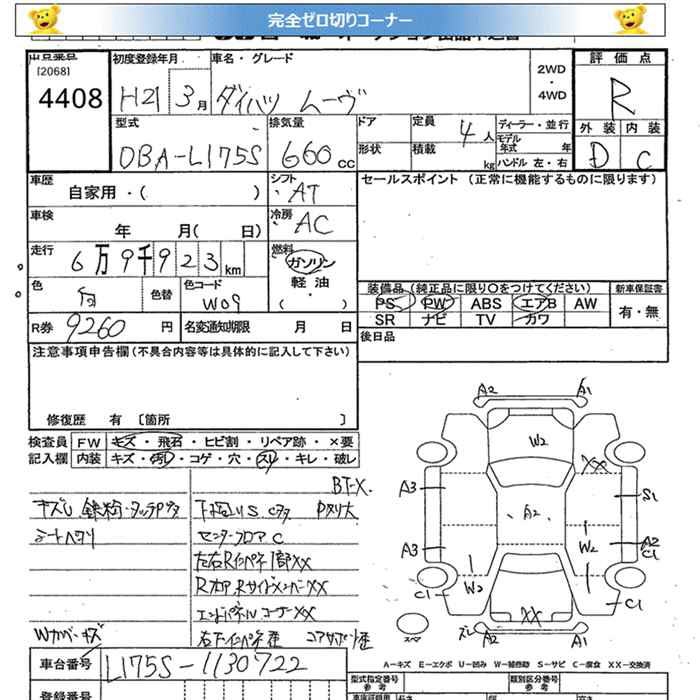 完全ゼロ切りコーナー
出品番号
[2068]
4408
初度登録年月
H21 3月
車名・グレード
ダイハツ ムーヴ
2WD
・
4WD
評価点
R
外装 内装
D C
型式
DBA-L175S
排気量
660 cc
ドア
形状
定員
4人
積載
kg
ディーラー・並行
モデル年式 年
ハンドル 左・右
車歴
自家用・( )
シフト
AT
車検
年 月( 日)
冷房
AC
走行
6万9千923km
燃料
ガソリン
軽油
( )
色
白
色替
色コード
W09
R券 9260円
名変通知期限 月 日
セールスポイント (正常に機能するものに限ります)
装備品(純正品に限り〇をつけてください)
PS PW ABS エアB AW
SR ナビ TV カワ
新車保証書
有・無
後日品
注意事項申告欄(不具合内容等は具体的に記入して下さい)
修復歴 有 〔箇所 〕
検査員 FW キズ・飛石・ヒビ割・リペア跡・×要
記入欄 内装 キズ・汚れ・コゲ・穴・スリ・キレ・破レ
BT-X
キズU
センターフロアC
左右Rインパネ1部XX
RフロアRサイドメンバーXX
エンドパネルコーナーXX
Wカバーキズ
A2 A1
W2
XX
A3
S1
A2
A3
W2
A2
C1
C1
W2
C1
XX
スペア
A2 A1
車台番号
L175S-1130722
登録番号
型式指定番号
参考
類別区分番号
参考
A-キズ E-エクボ U-凹み W-補修跡 S-サビ C-腐食 XX-交換済